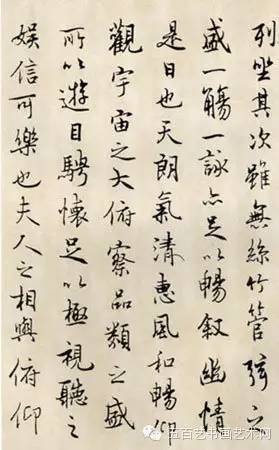 列坐其次雖無絲竹管弦之
盛一觴一詠亦足以暢敘幽情
是日也天朗氣清惠風和暢仰
觀宇宙之大俯察品類之盛
所以遊目騁懷足以極視聽之
娛信可樂也夫人之相與俯仰
五百艺书画艺术网